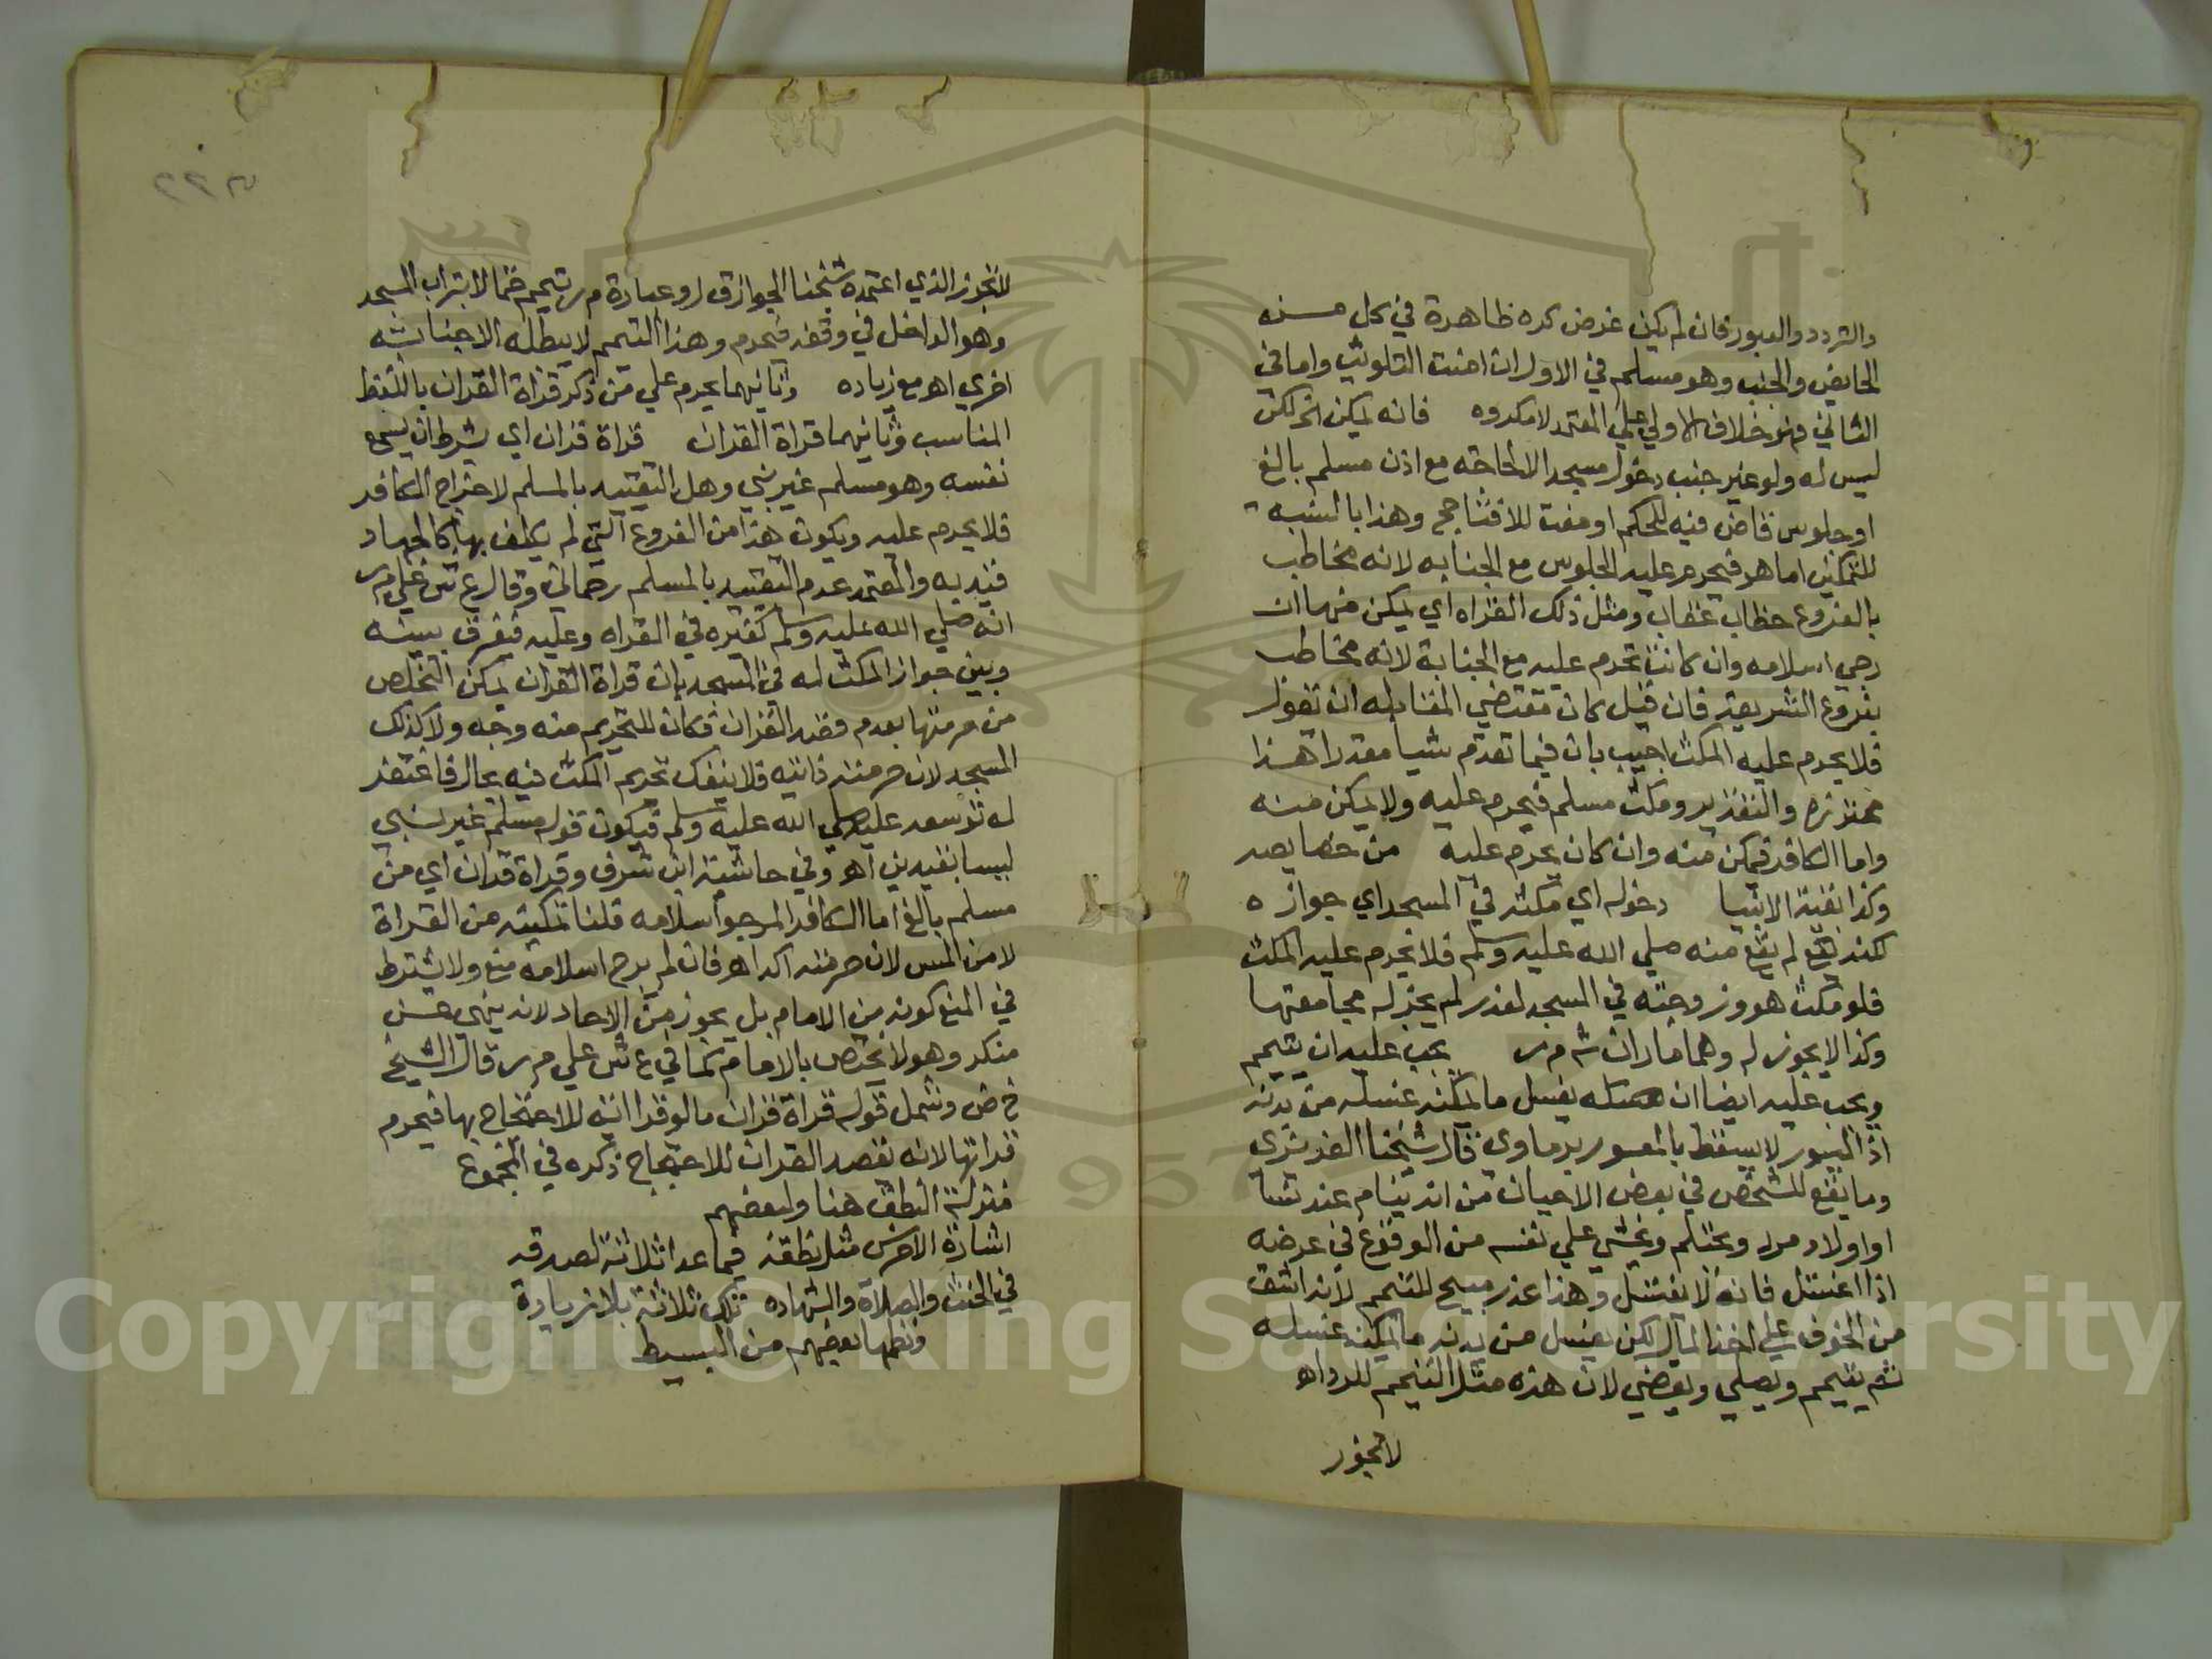 والتردد والعبور فان لم يكن غرض كره ظاهرة في كل منه
الحايض والجنب وهو مسلم في الاول ان امنت التلويث واما في
الثاني فهو خلاف الاولي علي المعتمد لا مكروه فانه يمكن الخ لكن
ليس له ولو غير جنب دخول مسجد الا لحاجة مع اذن مسلم بالغ
او جلوس قاض فيه للحكم او مفت للافتا حج وهذا بالنسبة
للتمكين اما هو فيحرم عليه الجلوس مع الجنابه لانه مخاطب
بالفروع خطاب عقاب ومثل ذلك القراه اي يمكن منها ان
رجي اسلامه وان كانت تحرم عليه مع الجنابة لانه مخاطب
بفروع الشريعة فان قيل كان مقتضي المقابله ان تقول
فلا يحرم عليه المكث اجيب بان فيما تقدم شيا مقدرا هذا
محترزه والتقدير ومكث مسلم فيحرم عليه ولا يمكن منه
واما الكافر فيمكن منه وان كان يحرم عليه من خصايصه
وكذا بقية الانبيا دخوله اي مكثه في المسجد اي جوازه
لكنه لم يقع منه صلي الله عليه وسلم فلا يحرم عليه المكث
فلو مكث هو وزوجته في المسجد لعذر لم يجز له مجامعتها
وكذا لا يجوز له وهما ماران ش م ر يجب عليه ان يتيمم
ويجب عليه ايضا ان يغسل ما يمكنه غسله من بدنه
اذ الميسور لا يسقط بالمعسور برماوي قال شيخنا العزيزي
وما يقع للشخص في بعض الاحيان من انه ينام عند نسا
او اولاد مرد ويحتلم ويخشي علي نفسه من الوقوع في عرضه
اذا اغتسل فانه لا يغتسل وهذا عذر مبيح للتيمم لانه اشق
من الخوف علي اخذ المال لكن يغسل من بدنه ما يمكنه غسله
ثم يتيمم ويصلي ويقضي لان هذه مثل التيمم للبرد اه
لا يجوز
٢٢٥
لا يجوز الذي اعتمده شيخنا الجواز ق ل وعبارة م ر تيمم حتما لا بتراب المسجد
وهو الداخل في وقفه فيحرم وهذا التيمم لا يبطله الا جنابة
اخري اه مع زياده وثانيهما يحرم علي من ذكر قراة القران باللفظ
المناسب وثانيهما قراة القران قراة قران اي بشرط ان يسمع
نفسه وهو مسلم غير نبي وهل التقييد بالمسلم لاخراج الكافر
فلا يحرم عليه ويكون هذا من الفروع التي لم يكلف بها كالجهاد
فيد به والمعتمد عدم التقييد بالمسلم رحماني وقال ع ش علي م ر
انه صلي الله عليه وسلم كغيره في القراه وعليه فيفرق بينه
وبين جواز المكث له في المسجد بان قراة القران يمكن التخلص
من حرمتها بعدم قصد القران فكان للتحريم منه وجه ولا كذلك
المسجد لان حرمته ذاتيه فلا ينفك تحريم المكث فيه بحال فاغتفر
له توسعه عليه صلي الله عليه وسلم فيكون قوله مسلم غير نبي
ليسا بقيدين اه وفي حاشية ابن شرف وقراة قران اي من
مسلم بالغ اما الكافر المرجو اسلامه فلنا تمكينه من القراة
لا من المس لان حرمته اكد اه فان لم يرج اسلامه منع ولا يشترط
في المنع كونه من الامام بل يجوز من الاحاد لانه ينهي عن
منكر وهو لا يختص بالامام كما في ع ش علي م ر قال الشيخ
خ ض وشمل قوله قراة قران ما لو قرا اية للاحتجاج بها فيحرم
قراتها لانه يقصد القران للاحتجاج ذكره في المجموع
منزلة النطق هنا ولبعضهم
اشارة الاخرس مثل نطقه فيما عدا ثلاثة لصدقه
في الحنث والصلاة والشهاده تلك ثلاثة بلا زيادة
ونظمها بعضهم من البسيط
Copyright © King Saud University
1957